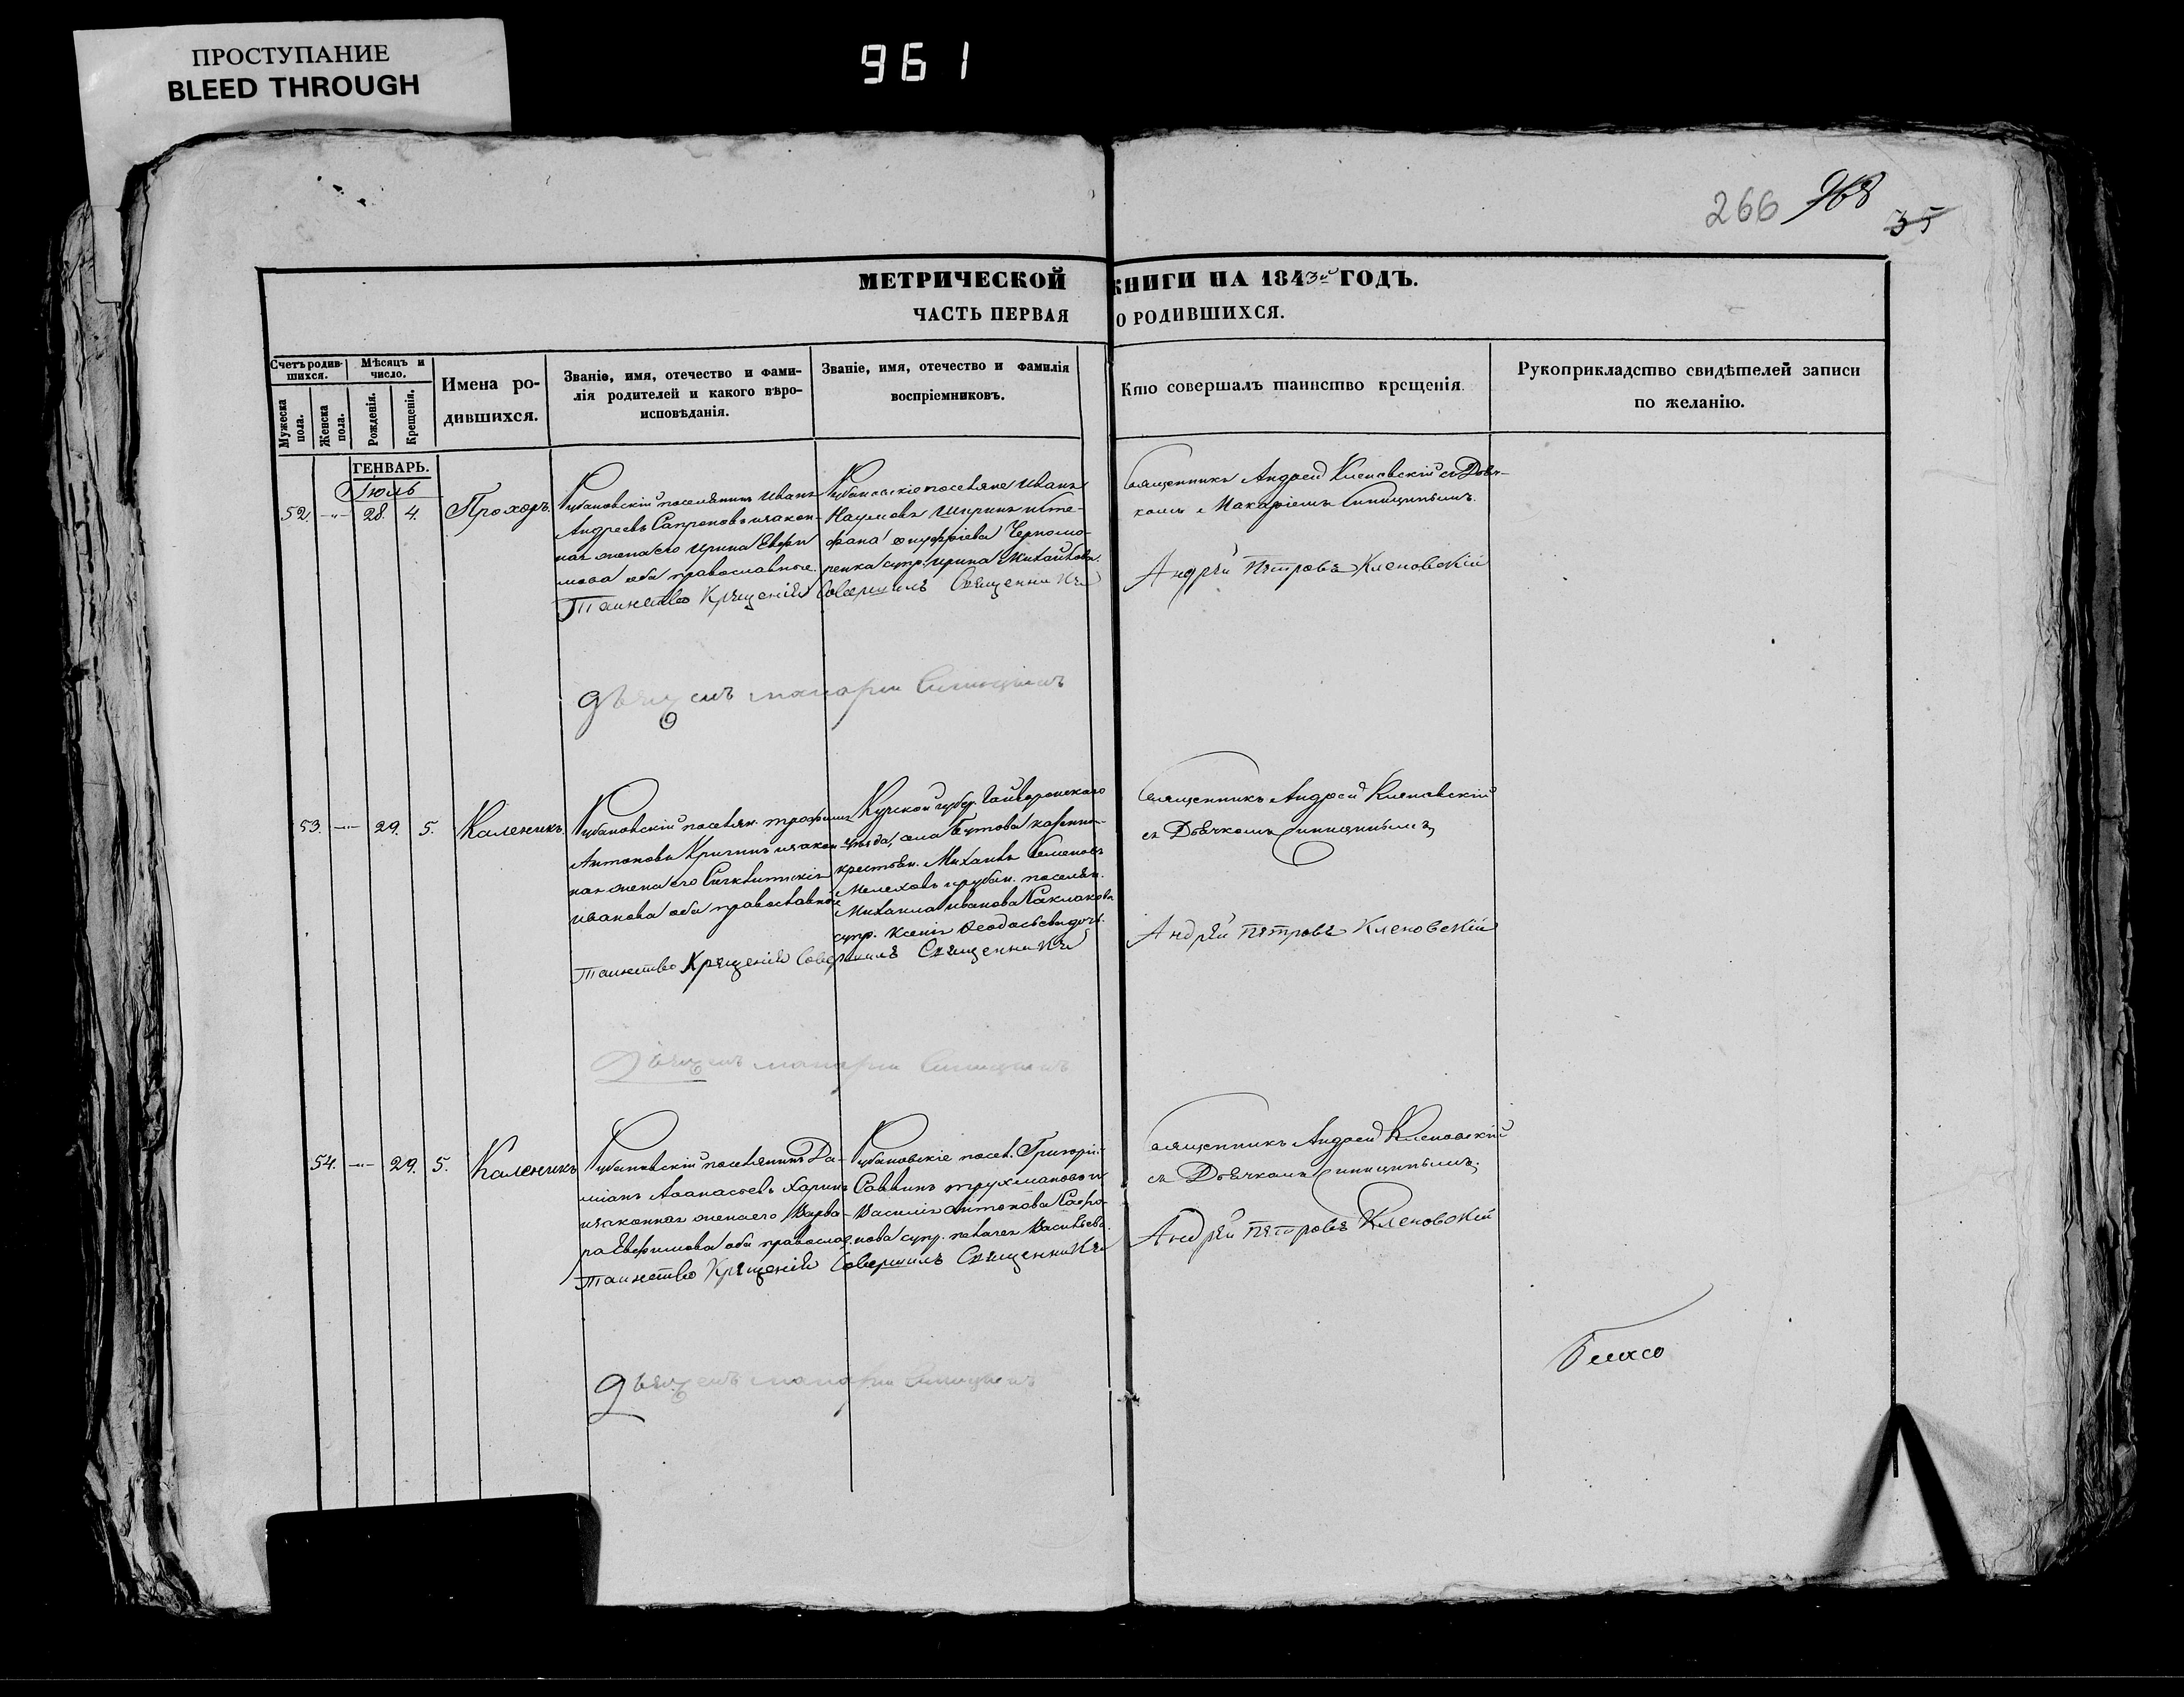 ПРОСТУПАНИЕ
BLEED THROUGH
961
266 968
35
МЕТРИЧЕСКОЙ КНИГИ НА 1843й ГОДЪ.
ЧАСТЬ ПЕРВАЯ О РОДИВШИХСЯ.
Счетъ родив-
шихся.
Мужеска
пола.
Женска
пола.
Мѣсяцъ и
число.
Рожденія.
Крещенія.
Имена ро-
дившихся.
Званіе, имя, отечество и фами-
лія родителей и какого вѣро-
исповѣданія.
Званіе, имя, отечество и фамилія
воспріемниковъ.
Кто совершалъ таинство крещенія.
Рукоприкладство свидѣтелей записи
по желанію.
ГЕНВАРЬ.
Іюль
52. -"- 28. 4.
Прохоръ.
Рубановскій поселянинъ Иванъ
Андреевъ Сапроновъ и закон-
ная жена его Ирина Евфи
мова оба православные.
Рубановскіе поселяне Иванъ
Наумовъ Ширинъ и Сте-
фана Онуфріева Черномо-
ренка супр. Ирина Михайлова.
Таинство Крещенія Совершилъ Священникъ
Священникъ Андрей Кленовскій съ Дьяч-
комъ Макаріемъ Синицинымъ.
Андрей Петровъ Кленовскій
дьячекъ макарій Синицынъ
53. -"- 29. 5.
Каленикъ.
Рубановскій поселян. Трофимъ
Антоновъ Кригинъ и закон-
ная жена его Гликлитикія
Иванова оба православные
Курской губер. Гайворонскаго
уѣзда, села Бутова казенно-
крестьян. Михаилъ Семеновъ
Мелеховъ и рубан. поселян.
Михаила Иванова Саклакова
супр. Ксенія Феодосьева дочь.
Таинство Крещенія Совершилъ Священникъ
Священникъ Андрей Кленовскій
съ Дьячкомъ Синицинымъ
Андрей Петровъ Кленовскій
Дьячекъ макарій Синицынъ
54. -"- 29. 5.
Каленикъ
Рубановскій поселянинъ Да-
міанъ Аѳанасьевъ Харинъ
и законная жена его Варва-
ра Евфимова оба православ.
Рубановскіе посел. Григорій
Саввинъ Трухмановъ и
Василія Антонова Сафро-
нова супр. Пелагея Васильева.
Таинство Крещенія Совершилъ Священникъ
Священникъ Андрей Кленовскій
съ Дьячкомъ Синицинымъ.
Андрей Петровъ Кленовскій
дьячекъ макарій Синицынъ